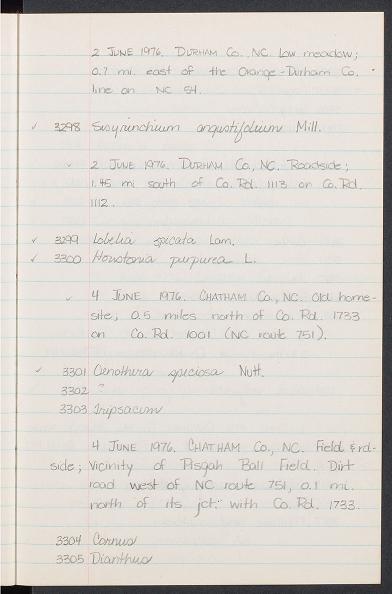 2 JUNE 1976. DURHAM Co., NC. Low meadow;
0.7 mi. east of the Orange-Durham Co.
line on NC 54.
✓ 3298 Sisyrinchium angustifolium Mill.
✓ 2 JUNE 1976. DURHAM Co., NC. Roadside;
1.45 mi south of Co. Rd. 1113 on Co. Rd.
1112.
✓ 3299 Lobelia spicata Lam.
✓ 3300 Houstonia purpurea L.
✓ 4 JUNE 1976. CHATHAM Co., NC. Old home-
site; 0.5 miles north of Co. Rd. 1733
on Co. Rd. 1001 (NC route 751).
✓ 3301 Oenothera speciosa Nutt.
3302 "
3303 Tripsacum
4 JUNE 1976. CHATHAM Co., NC. Field & rd-
side; vicinity of Pisgah Ball Field. Dirt
road west of NC route 751, 0.1 mi.
north of its jct. with Co. Rd. 1733.
3304 Cornus
3305 Dianthus